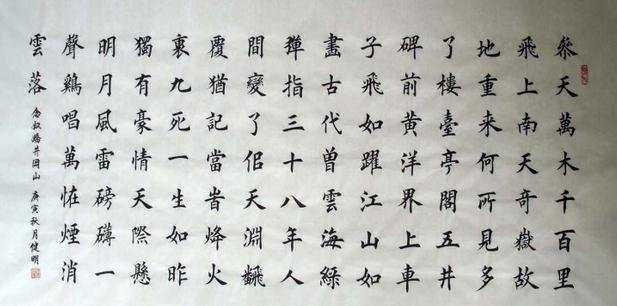 叅天萬木千百里
飛上南天奇嶽故
地重來何所見多
了樓臺亭閣五井
碑前黃洋界上車
子飛如躍江山如
畫古代曾雲海綠
彈指三十八年人
間變了佀天淵飜
覆猶記當旹烽火
裏九死一生如昨
獨有豪情天際懸
明月風雷磅礴一
聲鷄唱萬恠煙消
雲落
念奴嬌井岡山 庚寅秋月健明